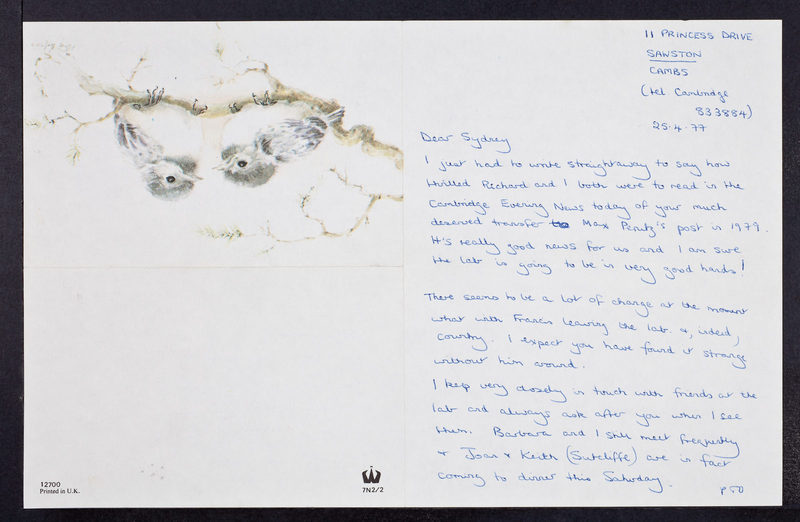 11 PRINCESS DRIVE
SAWSTON
CAMBS
(tel Cambridge
833884)
25.4.77
Dear Sydney
I just had to write straightaway to say how
thrilled Richard and I both were to read in the
Cambridge Evening News today of your much
deserved transfer to Max Perutz's post in 1979.
It's really good news for us and I am sure
the lab is going to be in very good hands!
There seems to be a lot of change at the moment
what with Francis leaving the lab &, indeed,
country. I expect you have found it strange
without him around.
I keep very closely in touch with friends at the
lab and always ask after you when I see
them. Barbara and I still meet frequently
& Joan & Keith (Sutcliffe) are in fact
coming to dinner this Saturday.
PTO
12700
Printed in U.K.
7N2/2